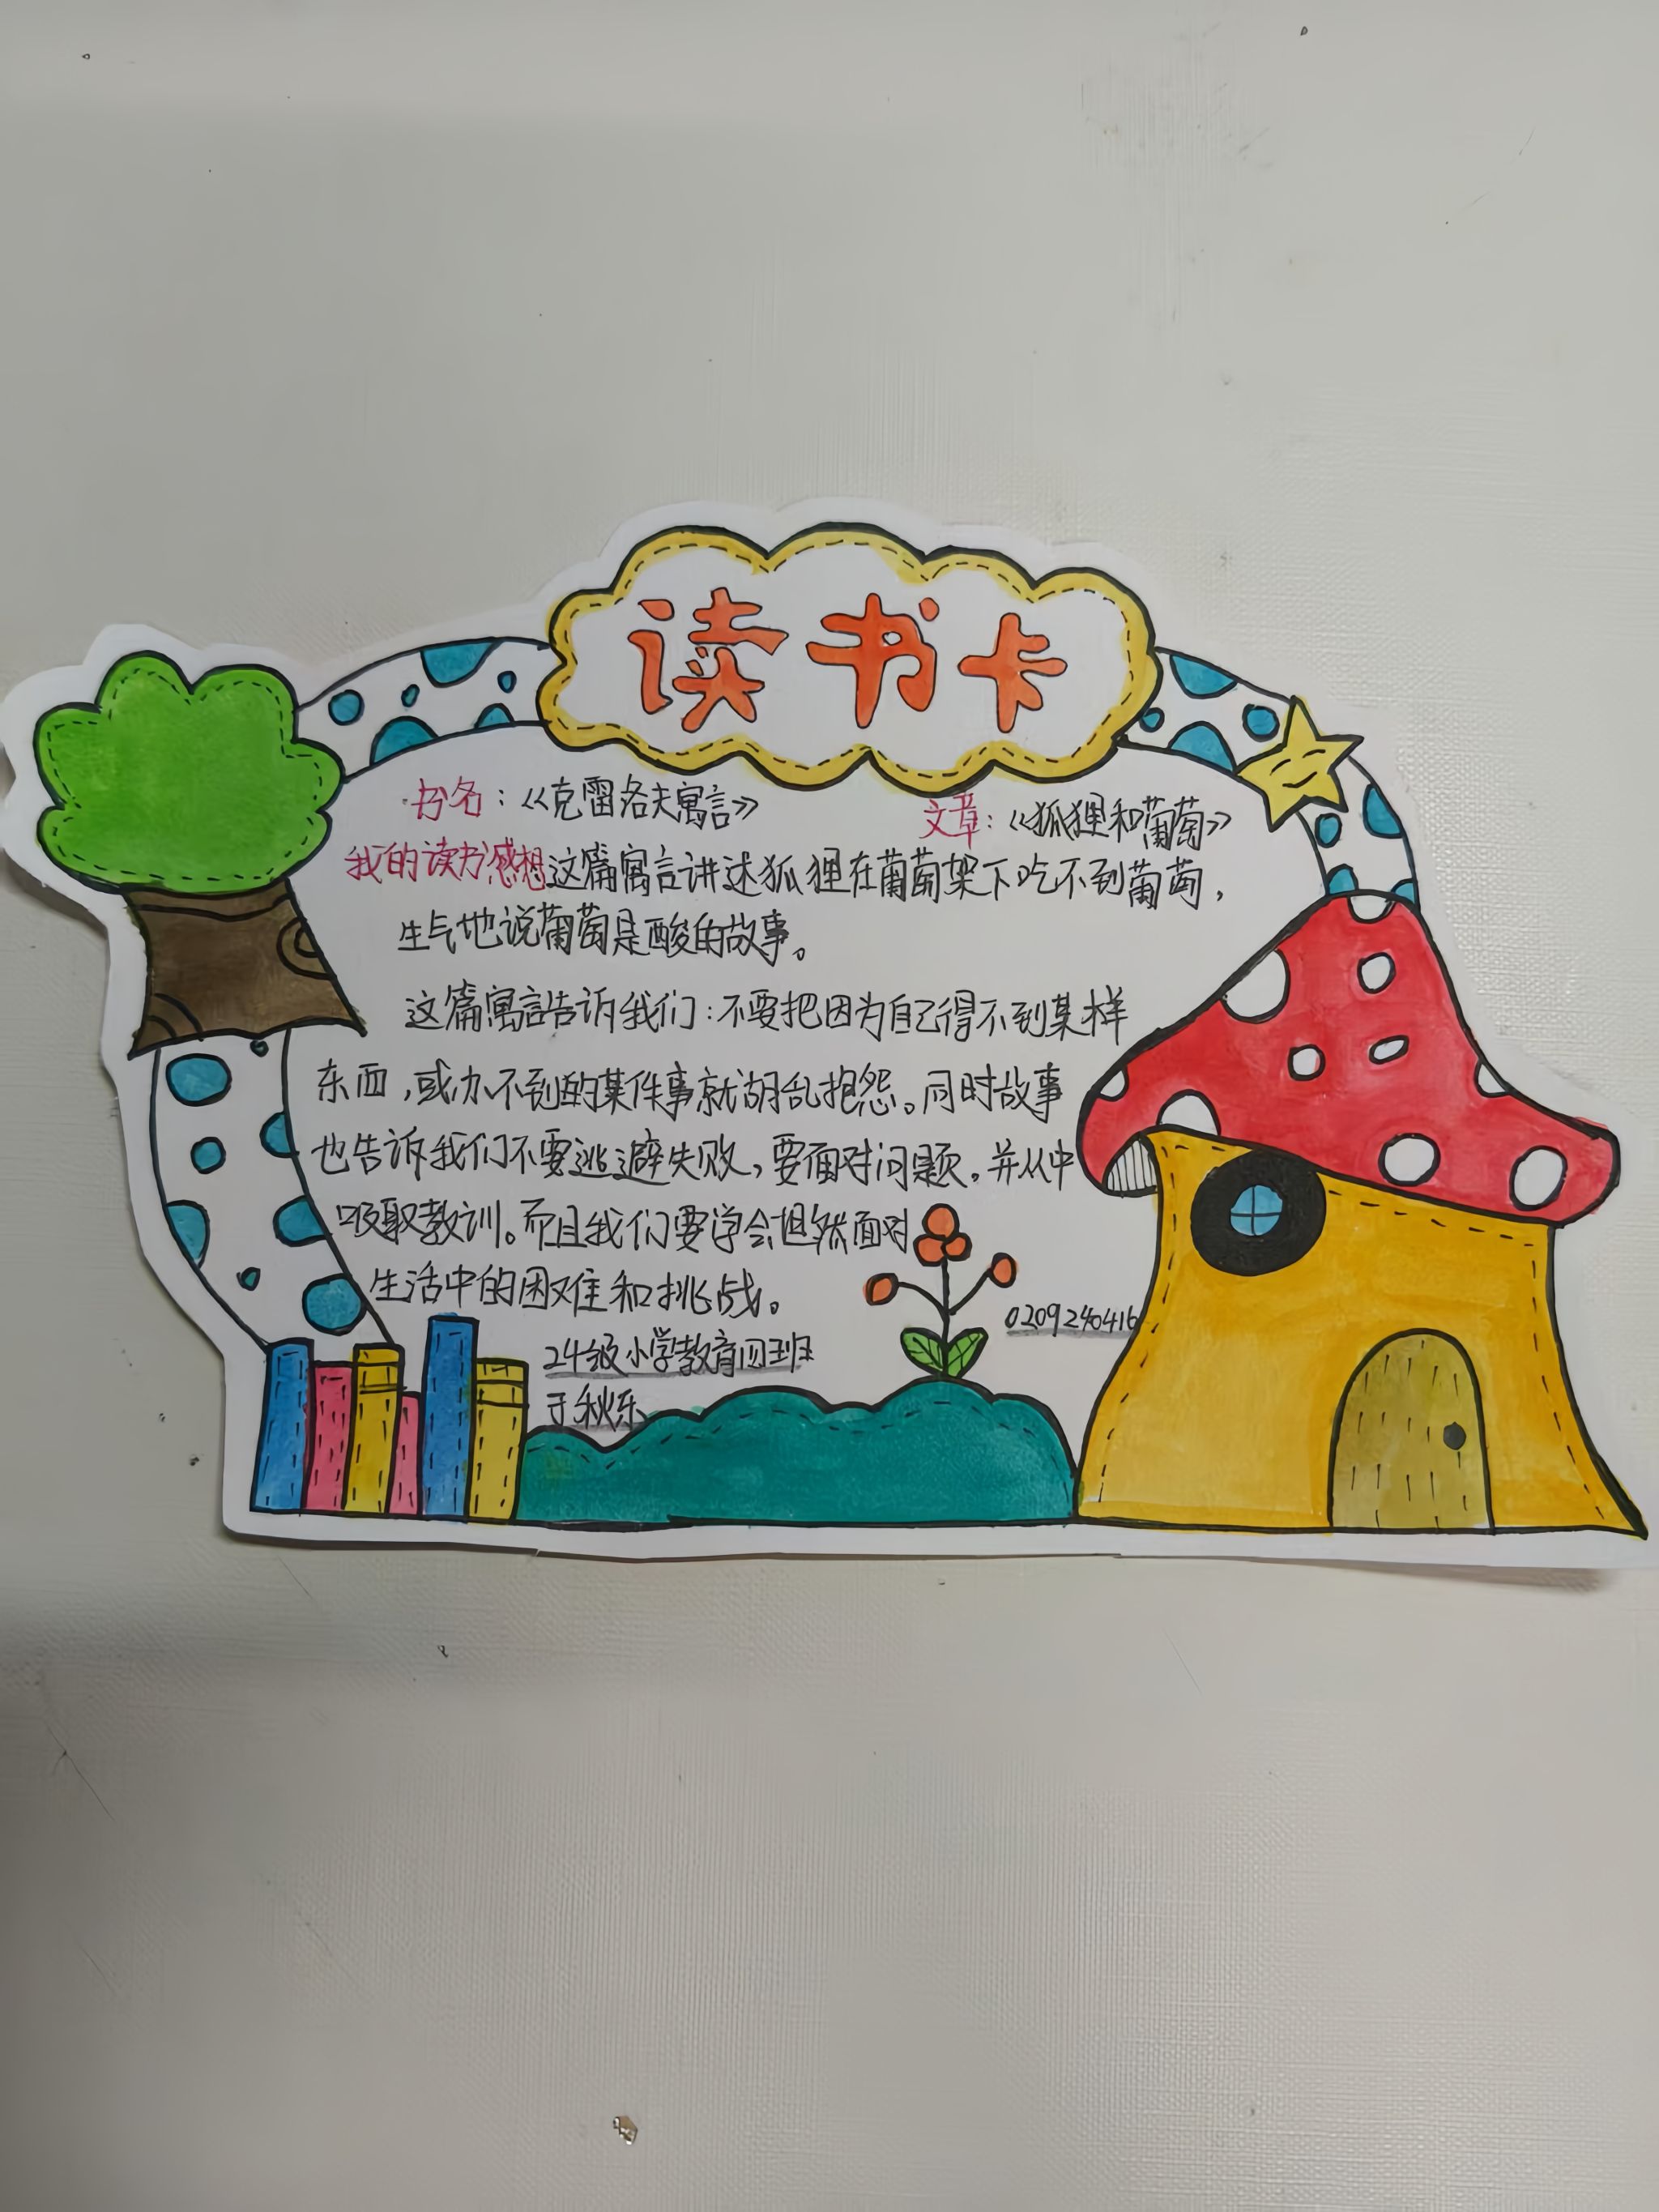 读书卡
书名：《克雷洛夫寓言》 文章：《狐狸和葡萄》
我的读书感想这篇寓言讲述狐狸在葡萄架下吃不到葡萄，
生气地说葡萄是酸的故事。
这篇寓言告诉我们：不要把因为自己得不到某样
东西，或办不到的某件事就胡乱抱怨。同时故事
也告诉我们不要逃避失败，要面对问题。并从中
吸取教训。而且我们要学会坦然面对
生活中的困难和挑战。
0209240416
24级小学教育四班
于秋乐